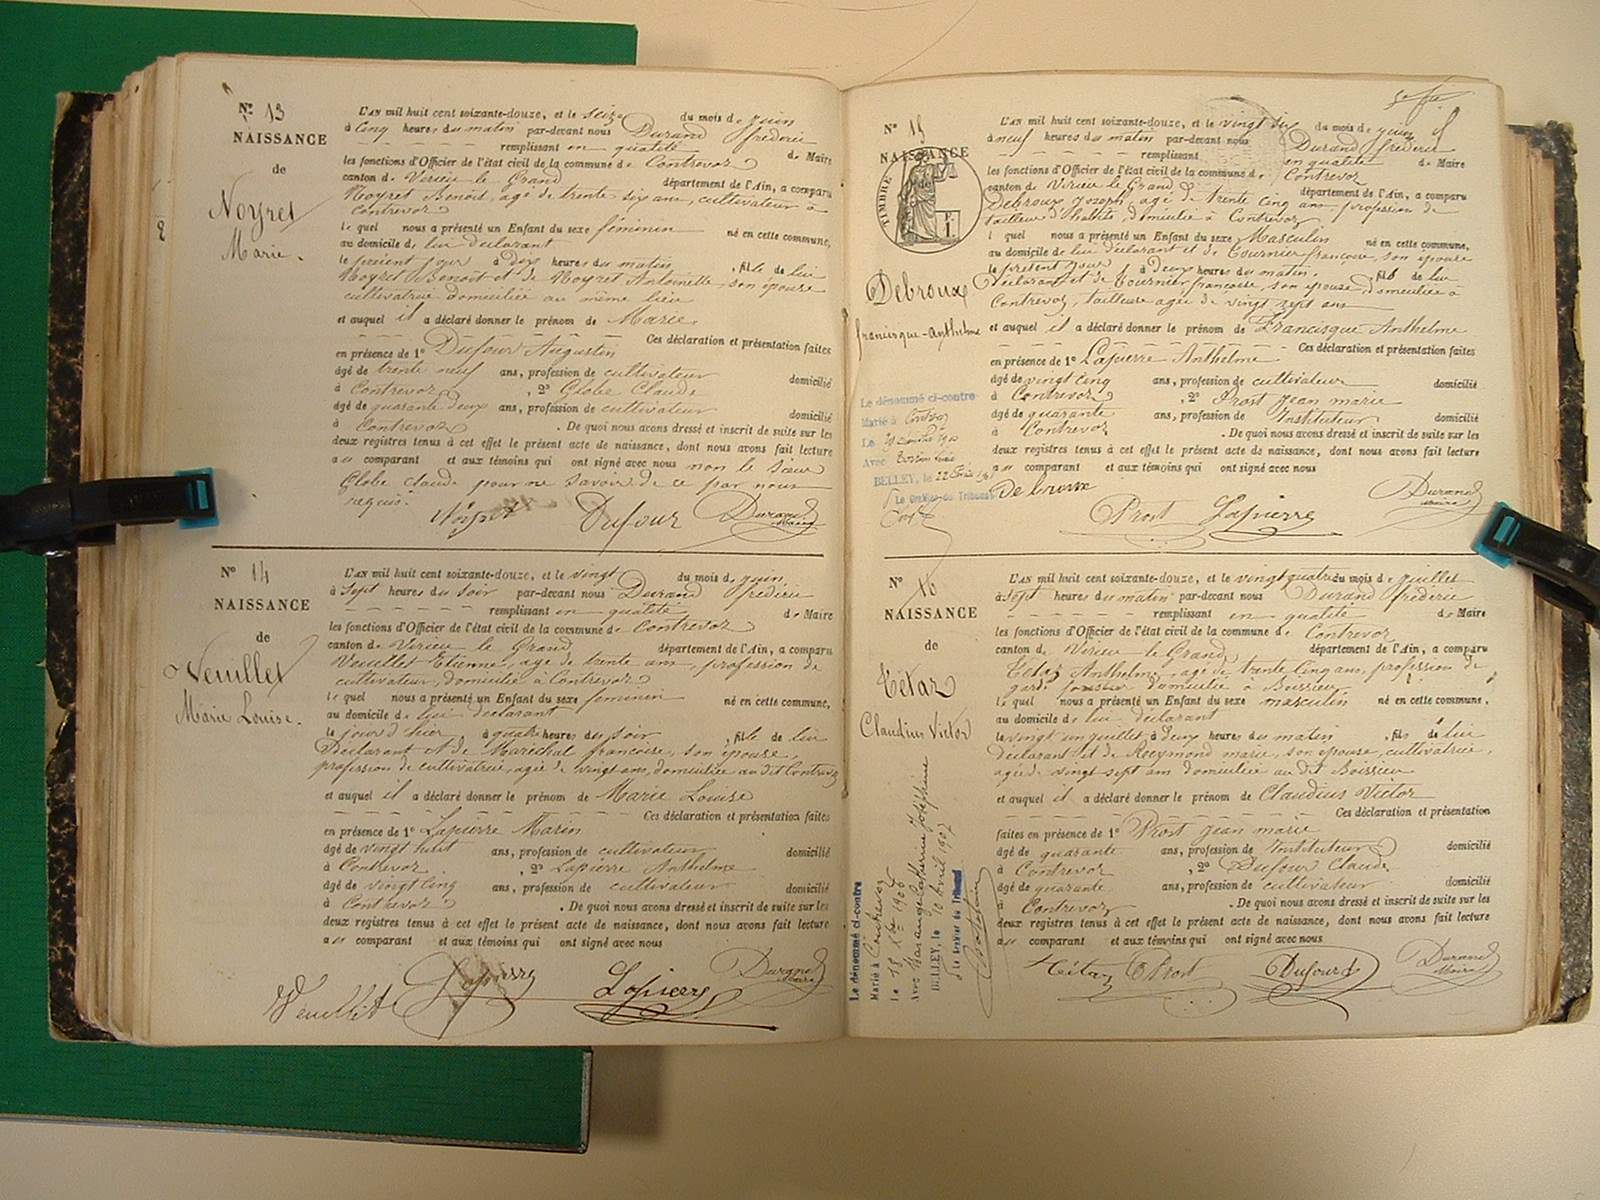 N° 13
NAISSANCE
de
Noyret
Marie.
L'AN mil huit cent soixante-douze, et le Seize du mois de Juin
à Cinq heures du matin par-devant nous Durand Frédéric
remplissant en qualité de Maire
les fonctions d'Officier de l'état civil de la commune de Contrevoz
canton de Virieu le Grand département de l'Ain, a comparu
Noyret Benoît, âgé de trente six ans, cultivateur à
Contrevoz
le quel nous a présenté un Enfant du sexe féminin né en cette commune,
au domicile de lui déclarant
le présent jour à deux heures du matin, fille de lui
Noyret Benoît et de Noyret Antoinette, son épouse
cultivatrice domiciliée au même lieu
et auquel il a déclaré donner le prénom de Marie
Ces déclaration et présentation faites
en présence de 1° Dufour Augustin
âgé de trente neuf ans, profession de cultivateur domicilié
à Contrevoz, 2° Globe Claude
âgé de quarante deux ans, profession de cultivateur domicilié
à Contrevoz. De quoi nous avons dressé et inscrit de suite sur les
deux registres tenus à cet effet le présent acte de naissance, dont nous avons fait lecture
au comparant et aux témoins qui ont signé avec nous non le sieur
Globe Claude pour ne savoir de ce par nous
requis.
Noyret Dufour Durand
Maire
N° 14
NAISSANCE
de
Veuillet
Marie Louise.
L'AN mil huit cent soixante-douze, et le vingt du mois de Juin
à Sept heures du soir par-devant nous Durand Frédéric
remplissant en qualité de Maire
les fonctions d'Officier de l'état civil de la commune de Contrevoz
canton de Virieu le Grand département de l'Ain, a comparu
Veuillet Etienne, âgé de trente ans, profession de
cultivateur, domicilié à Contrevoz
le quel nous a présenté un Enfant du sexe féminin né en cette commune,
au domicile de lui déclarant
le jour d'hier, à quatre heures du soir, fille de lui
Déclarant et de Maréchal françoise, son épouse,
profession de cultivatrice, agée de vingt ans, domiciliée au dit Contrevoz
et auquel il a déclaré donner le prénom de Marie Louise
Ces déclaration et présentation faites
en présence de 1° Lapierre Marin
âgé de vingt huit ans, profession de cultivateur domicilié
à Contrevoz, 2° Lapierre Anthelme
âgé de vingt cinq ans, profession de cultivateur domicilié
à Contrevoz. De quoi nous avons dressé et inscrit de suite sur les
deux registres tenus à cet effet le présent acte de naissance, dont nous avons fait lecture
au comparant et aux témoins qui ont signé avec nous
Veuillet Lapierre Lapierre Durand
Maire
N° 15
NAISSANCE
de
TIMBRE
Debroux
francisque-Anthelme
L'AN mil huit cent soixante-douze, et le vingt six du mois de Juin
à neuf heures du matin par-devant nous Durand Frédéric
remplissant en qualité de Maire
les fonctions d'Officier de l'état civil de la commune de Contrevoz
canton de Virieu le Grand département de l'Ain, a comparu
Debroux Joseph, agé de trente Cinq ans, profession de
tailleur d'habits, domicilié à Contrevoz
le quel nous a présenté un Enfant du sexe Masculin né en cette commune,
au domicile de lui déclarant et de Tournier françoise, son épouse
le présent jour à deux heures du matin, fils de lui
Déclarant et de Tournier françoise, son épouse domiciliée à
Contrevoz, tailleuse agée de vingt sept ans
et auquel il a déclaré donner le prénom de Francisque Anthelme
Ces déclaration et présentation faites
en présence de 1° Lapierre Anthelme
âgé de vingt cinq ans, profession de cultivateur domicilié
à Contrevoz, 2° Prost Jean marie
âgé de quarante ans, profession de Instituteur domicilié
à Contrevoz. De quoi nous avons dressé et inscrit de suite sur les
deux registres tenus à cet effet le présent acte de naissance, dont nous avons fait lecture
au comparant et aux témoins qui ont signé avec nous
Debroux Prost Lapierre Durand
Maire
Le dénommé ci-contre
Marié à
Le
Avec
BELLEY, le 22
Le Greffier du Tribunal
N° 16
NAISSANCE
de
Tétaz
Claudius Victor
L'AN mil huit cent soixante-douze, et le vingt quatre du mois de Juillet
à Sept heures du matin par-devant nous Durand Frédéric
remplissant en qualité de Maire
les fonctions d'Officier de l'état civil de la commune de Contrevoz
canton de Virieu le Grand, département de l'Ain, a comparu
Tétaz Anthelme, agé de trente cinq ans, profession de
garde forestier domicilié à Boissieu
le quel nous a présenté un Enfant du sexe masculin né en cette commune,
au domicile de lui déclarant
le vingt un juillet à deux heures du matin, fils de lui
déclarant et de Reymond marie, son épouse, cultivatrice,
agée de vingt sept ans domiciliée au dit Boissieu
et auquel il a déclaré donner le prénom de Claudius Victor
Ces déclaration et présentation
faites en présence de 1° Prost Jean marie
âgé de quarante ans, profession de Instituteur domicilié
à Contrevoz, 2° Dufour Claude
âgé de quarante ans, profession de cultivateur domicilié
à Contrevoz. De quoi nous avons dressé et inscrit de suite sur les
deux registres tenus à cet effet le présent acte de naissance, dont nous avons fait lecture
au comparant et aux témoins qui ont signé avec nous
Tétaz Prost Dufour Durand
Maire
Le dénommé ci-contre
Marié à Contrevoz
Le 18 1906
Avec Catherine Joséphine
BELLEY, le 10 Avril 1907
Le Greffier du Tribunal